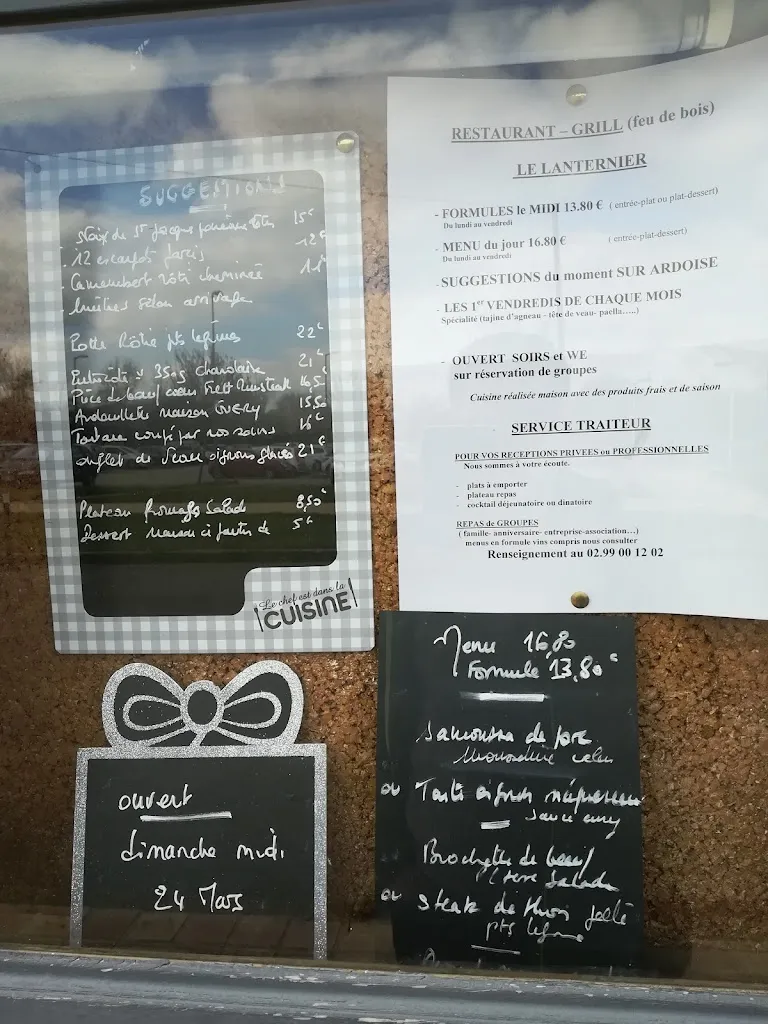 SUGGESTIONS
Noix de St Jacques 15€
12 escargots farcis 12€
Camembert rôti cheminée 11€
huîtres selon arrivage
Lotte Rôtie pts légumes 22€
Entrecôte 350g charolaise 21€
Pièce de boeuf coeur Rumsteak 16,5€
Andouillette maison GUERY 15,50
Tartare coupé par nos soins 16€
onglet de Veau oignons glacés 21€
Plateau fromages Salade 8,50€
Dessert maison à partir de 5€
Le chef est dans la
CUISINE
RESTAURANT – GRILL (feu de bois)
LE LANTERNIER
- FORMULES le MIDI 13.80 € ( entrée-plat ou plat-dessert)
Du lundi au vendredi
- MENU du jour 16.80 € (entrée-plat-dessert)
Du lundi au vendredi
- SUGGESTIONS du moment SUR ARDOISE
- LES 1er VENDREDIS DE CHAQUE MOIS
Spécialité (tajine d'agneau - tête de veau- paella…..)
- OUVERT SOIRS et WE
sur réservation de groupes
Cuisine réalisée maison avec des produits frais et de saison
SERVICE TRAITEUR
POUR VOS RECEPTIONS PRIVEES ou PROFESSIONNELLES
Nous sommes à votre écoute.
- plats à emporter
- plateau repas
- cocktail déjeunatoire ou dinatoire
REPAS de GROUPES
( famille- anniversaire- entreprise-association…)
menus en formule vins compris nous consulter
Renseignement au 02.99 00 12 02
ouvert
dimanche midi
24 Mars
Menu 16,80
Formule 13,80€
Samoussa de porc
ou Tarte oignons
sauce curry
Brochette de boeuf
Salade
ou Steak de thon
pts légume